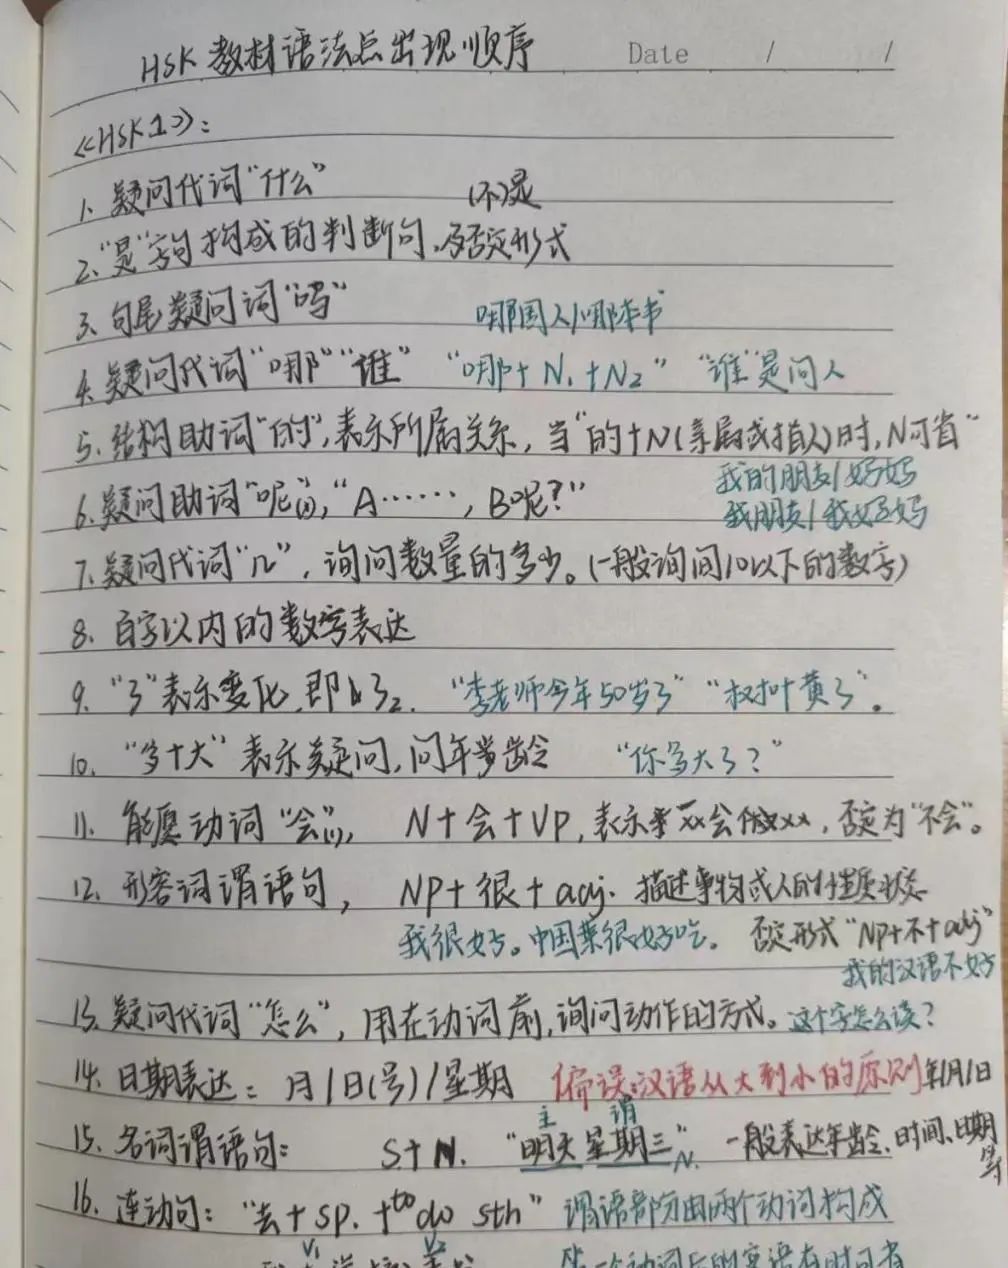 HSK教材语法点出现顺序 Date / /
《HSK1》：
1、疑问代词“什么”
(不)是
2、“是”字句构成的判断句，及否定形式
3、句尾疑问词“吗”
哪国人/哪本书
4、疑问代词“哪”“谁” “哪+N₁+N₂” “谁”是问人
5、结构助词“的”，表示所属关系，当“的+N(亲属或指人)时，N可省”
我的朋友/妈妈
6、疑问助词“呢(1)”，“A……，B呢？”
我朋友/我妈妈
7、疑问代词“几”，询问数量的多少。(一般询问10以下的数字)
8、百字以内的数字表达
9、“了”表示变化，即了₂. “李老师今年50岁了” “树叶黄了”。
10、“多+大”表示疑问，问年龄 “你多大了？”
11、能愿动词“会(1)”， N+会+VP，表示xx会做xx，否定为“不会”。
12、形容词谓语句， NP+很+adj. 描述事物或人的性质状态
我很好。中国菜很好吃。 否定形式“NP+不+adj”
我的汉语不好
13、疑问代词“怎么”，用在动词前，询问动作的方式。这个字怎么读？
14、日期表达：月/日(号)/星期 偏误：汉语从大到小的原则 年/月/日
主 谓
15、名词谓语句： S+N. “明天星期三” N. 一般表达年龄、时间、日期等
16、连动句：“去+sp.+to do sth” 谓语部分由两个动词构成
V₁ V₂